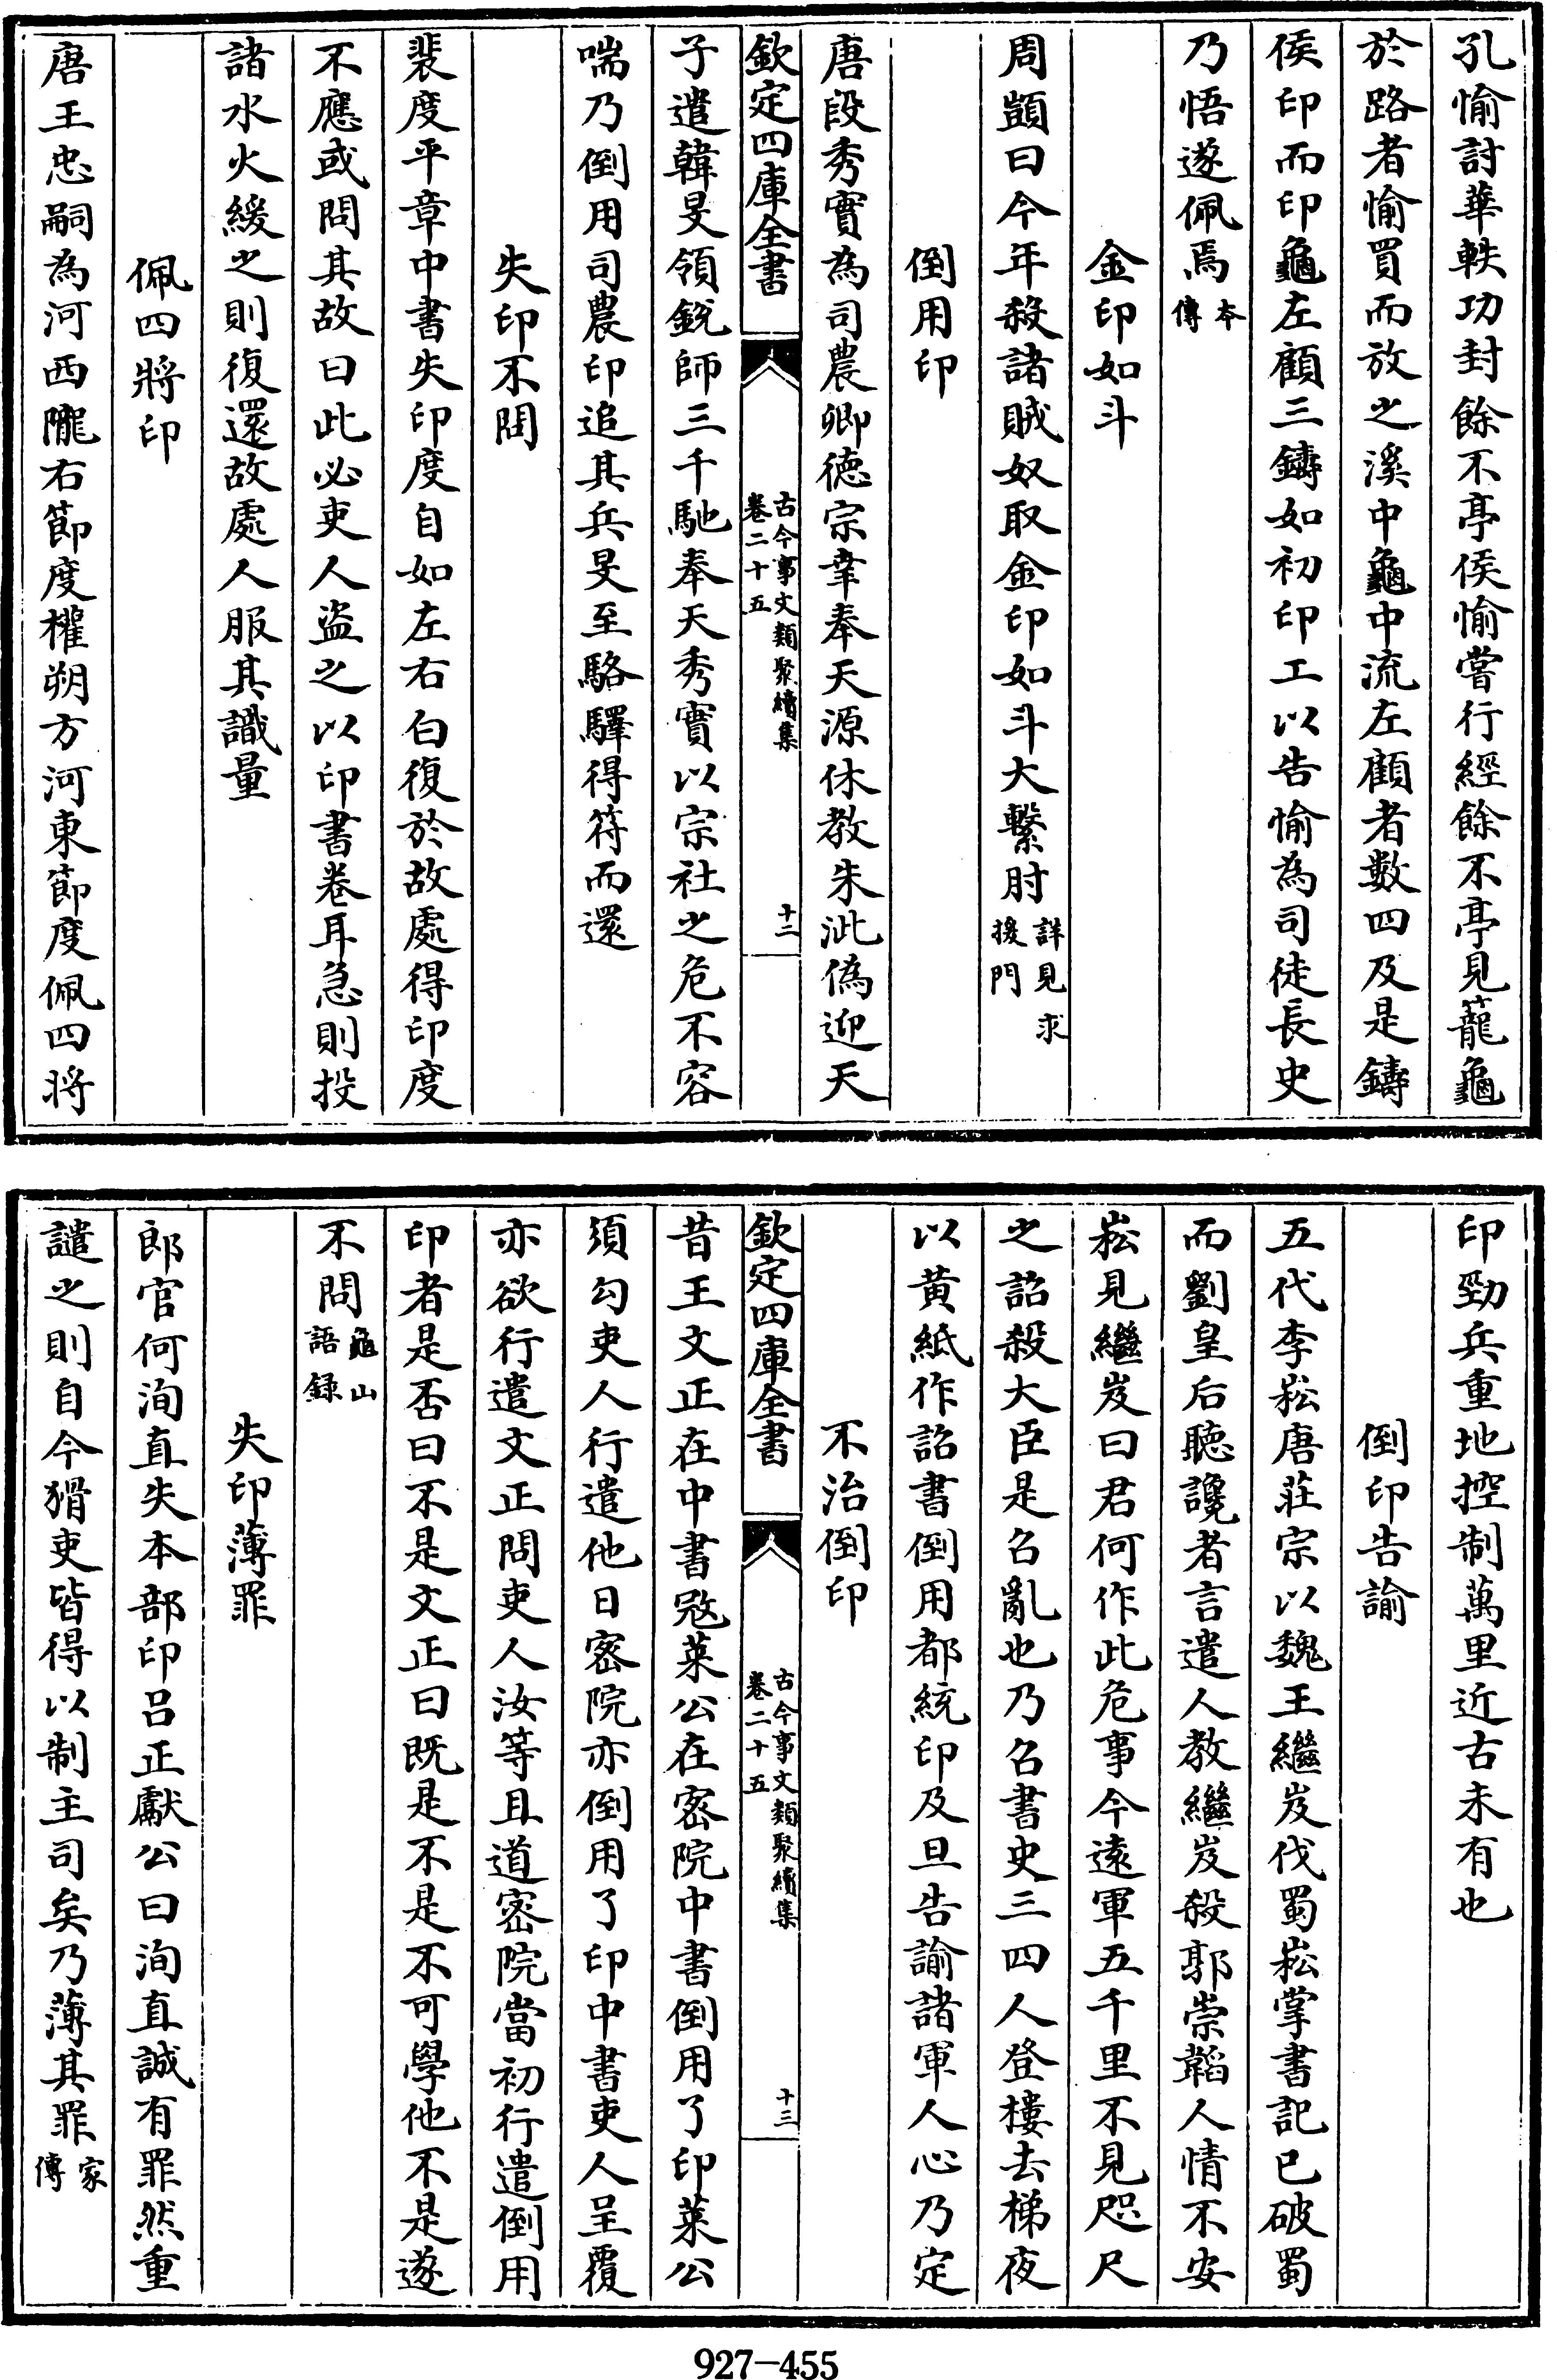 孔愉討華軼功封餘不亭侯愉嘗行經餘不亭見籠龜
於路者愉買而放之溪中龜中流左顧者數四及是鑄
侯印而印龜左顧三鑄如初印工以告愉為司徒長史
乃悟遂佩焉本傳
金印如斗
周顗曰今年殺諸賊奴取金印如斗大繫肘詳見求援門
倒用印
唐段秀實為司農卿德宗幸奉天源休教朱泚偽迎天
欽定四庫全書
古今事文類聚續集
卷二十五
十二
子遣韓旻領銳師三千馳奉天秀實以宗社之危不容
喘乃倒用司農印追其兵旻至駱驛得符而還
失印不問
裴度平章中書失印度自如左右白復於故處得印度
不應或問其故曰此必吏人盜之以印書卷耳急則投
諸水火緩之則復還故處人服其識量
佩四將印
唐王忠嗣為河西隴右節度權朔方河東節度佩四將
印勁兵重地控制萬里近古未有也
倒印告諭
五代李崧唐莊宗以魏王繼岌伐蜀崧掌書記已破蜀
而劉皇后聽讒者言遣人教繼岌殺郭崇韜人情不安
崧見繼岌曰君何作此危事今遠軍五千里不見咫尺
之詔殺大臣是召亂也乃召書史三四人登樓去梯夜
以黃紙作詔書倒用都統印及旦告諭諸軍人心乃定
不治倒印
欽定四庫全書
古今事文類聚續集
卷二十五
十三
昔王文正在中書寇萊公在密院中書倒用了印萊公
須勾吏人行遣他日密院亦倒用了印中書吏人呈覆
亦欲行遣文正問吏人汝等且道密院當初行遣倒用
印者是否曰不是文正曰既是不是不可學他不是遂
不問龜山語錄
失印薄罪
郎官何洵直失本部印呂正獻公曰洵直誠有罪然重
譴之則自今猾吏皆得以制主司矣乃薄其罪家傳
927-455